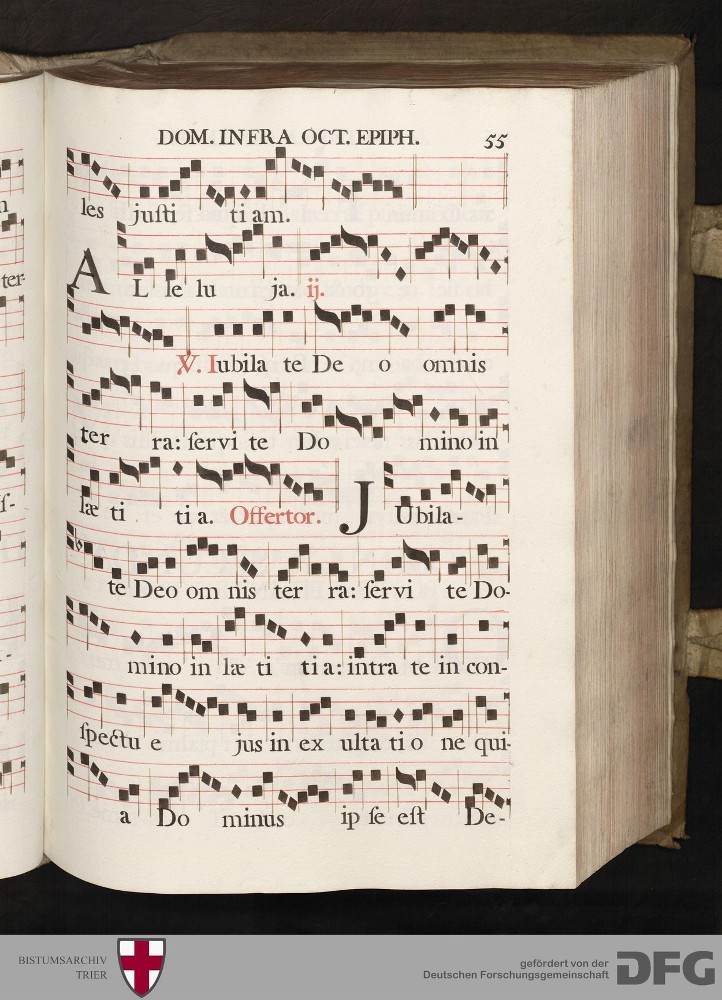 DOM. INFRA OCT. EPIPH. 55
les juſti ti am.
AL le lu ja. ij.
℣. Iubila te De o omnis
ter ra: ſervi te Do mino in
læ ti ti a. Offertor. JUbila-
te Deo om nis ter ra: ſervi te Do-
mino in læ ti ti a: intra te in con-
ſpectu e jus in ex ulta ti o ne qui-
a Do minus ip ſe eſt De-
ter-
ſ-
BISTUMSARCHIV
TRIER
gefördert von der
Deutschen Forschungsgemeinschaft
DFG